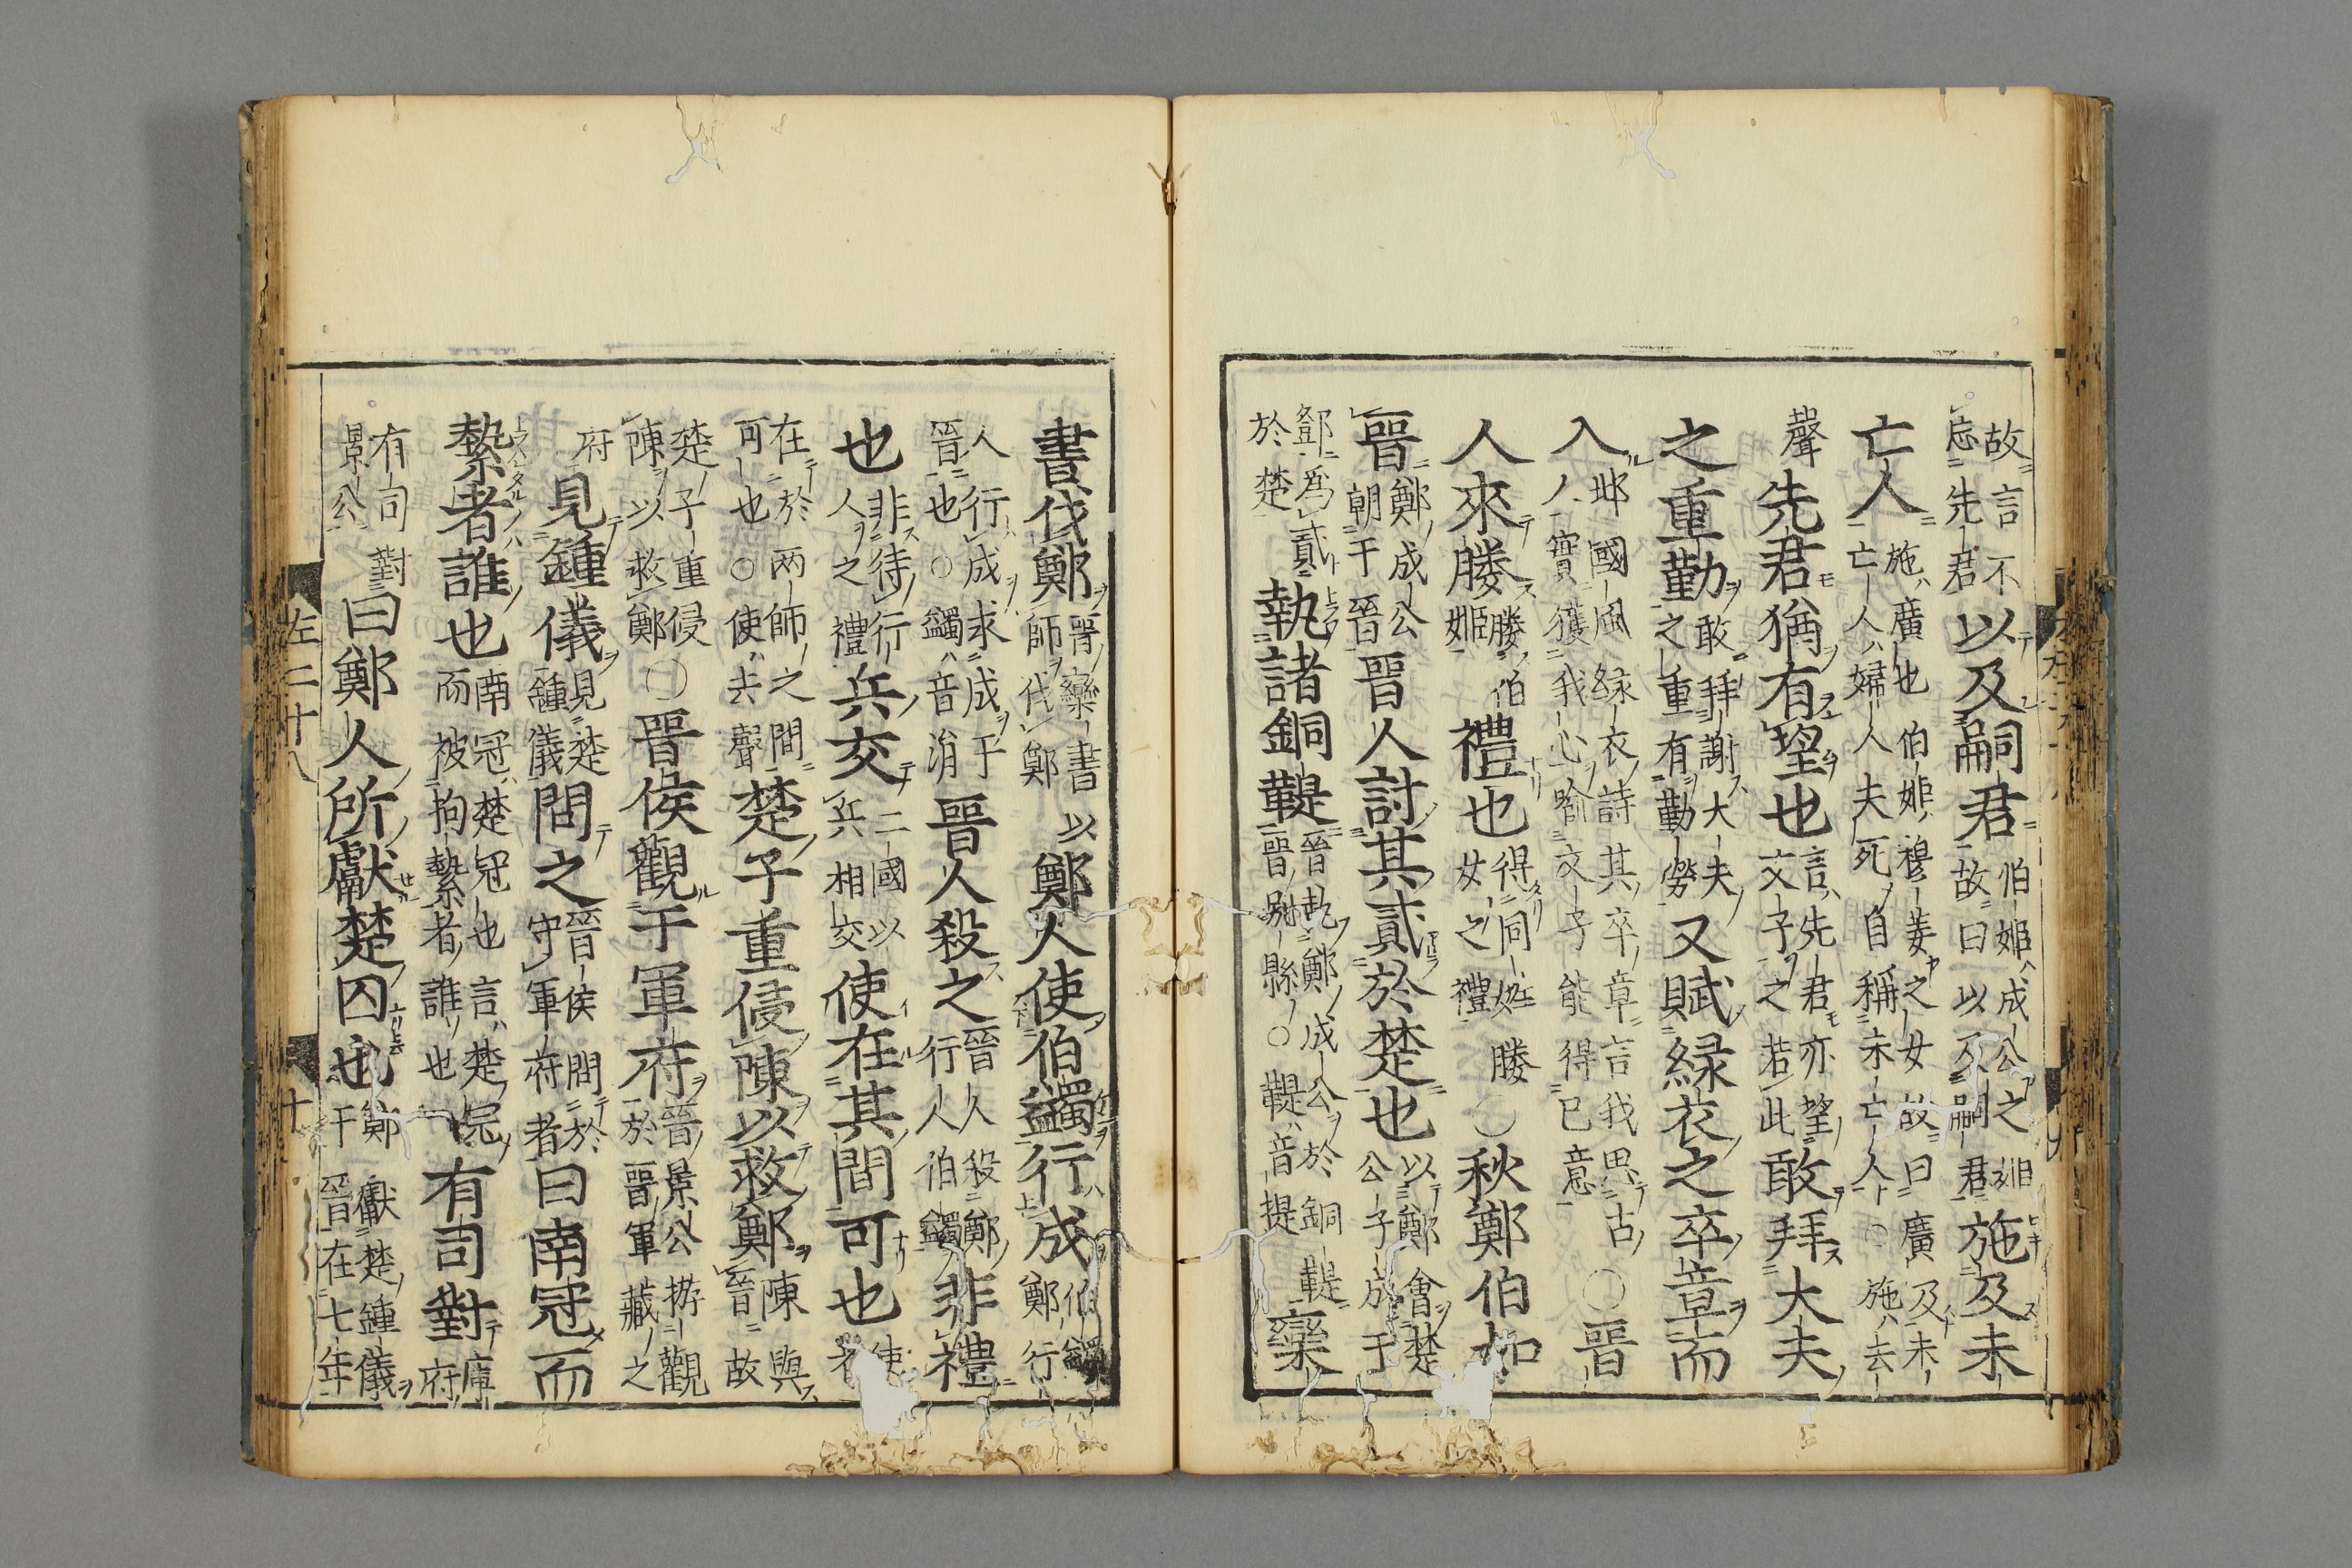 故言不忘先君以及嗣君伯姬成公之姊故曰以及嗣君施及未
亡人施廣也伯姬穆姜之女故曰廣及未亡人婦人夫死自稱未亡人○施去
聲先君猶有望也言先君亦望文子之若此敢拜大夫
之重勤敢拜謝大夫之重有勤勞又賦綠衣之卒章而
入邶國風綠衣詩其卒章言我思古人實獲我心喻文子能得已意○晉
人來媵媵伯姬禮也得同姓媵女之禮○秋鄭伯如
晉鄭成公朝于晉晉人討其貳於楚也以鄭會楚公子成于
鄧為貳於楚執諸銅鞮晉執鄭成公於銅鞮晉別縣○鞮音提欒
書伐鄭晉欒書師伐鄭以鄭人使伯蠲行成伯蠲鄭行
人行成求成于晉也○蠲音涓晉人殺之晉人殺鄭行人伯蠲非禮
也非待行人之禮兵交二國以兵相交使在其間可也使者
在於兩師之間可也○使去聲楚子重侵陳以救鄭陳與晉故
楚子重侵陳以救鄭○晉侯觀于軍府晉景公遊觀於晉軍藏之
府見鍾儀見楚鍾儀問之晉侯問於守軍府者曰南冠而
縶者誰也南冠楚冠也言楚冠而被拘縶者誰也有司對庫府
有司對景公曰鄭人所獻楚囚也鄭獻楚鍾儀于晉在七年
左二十八
十